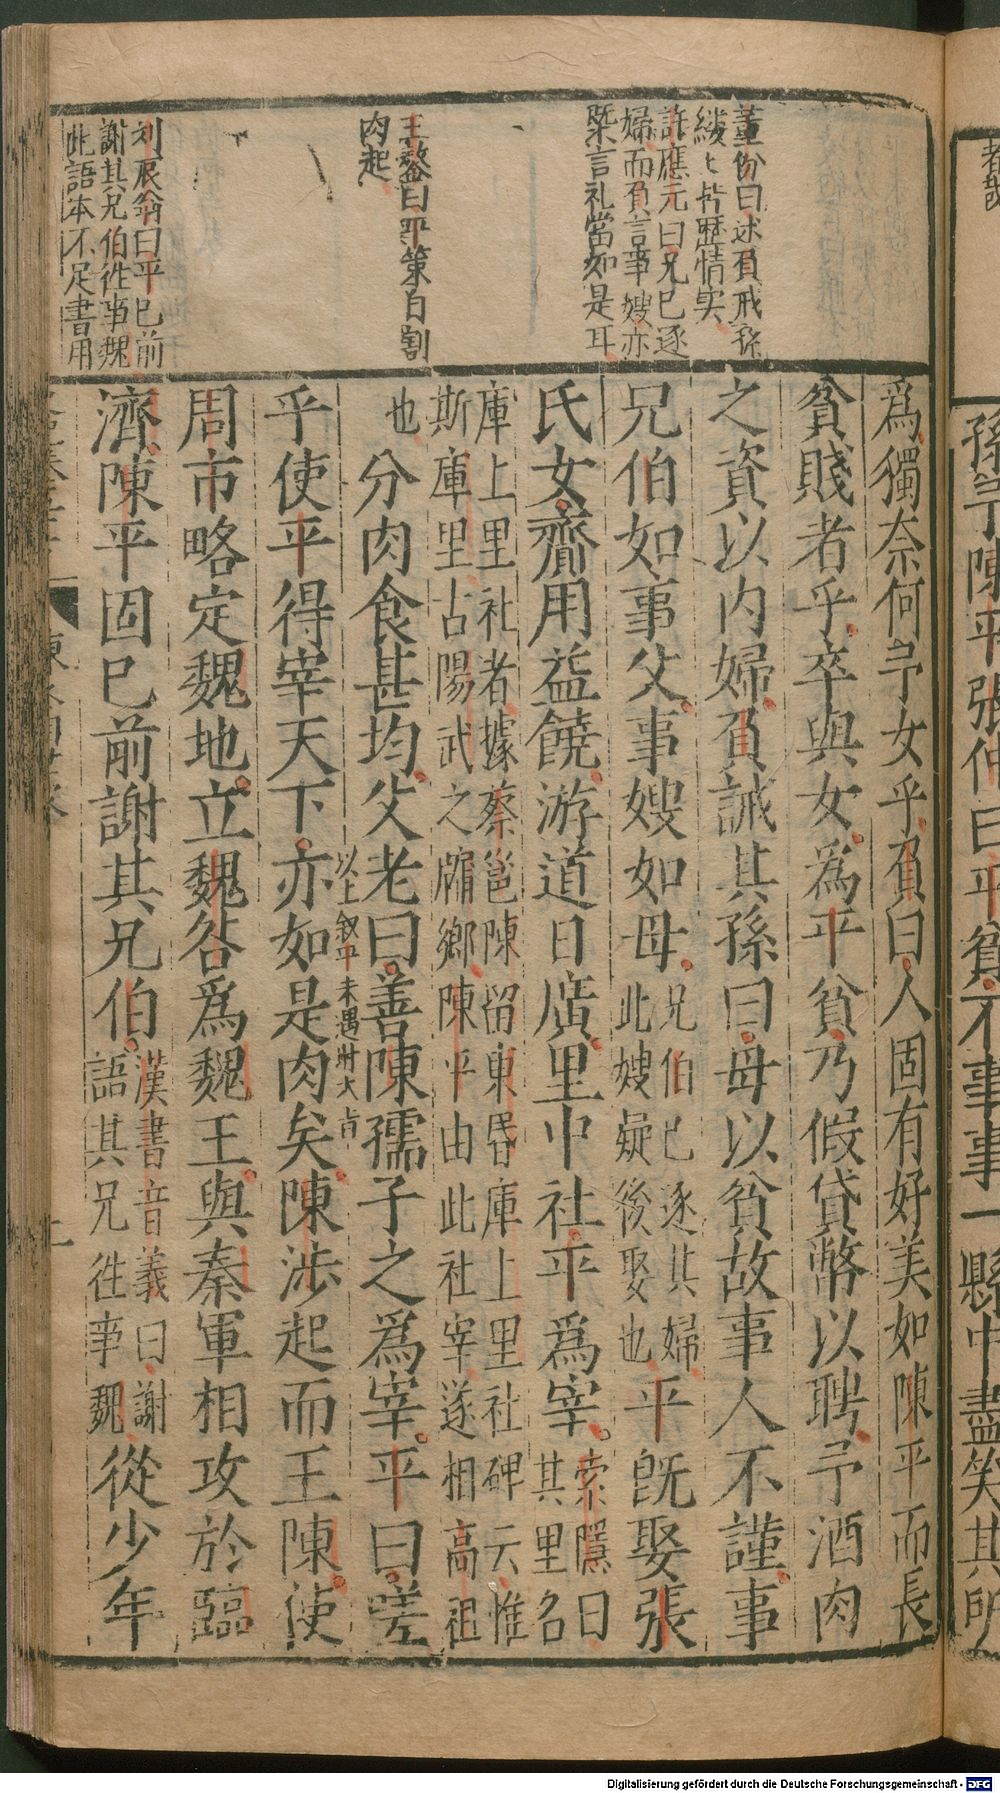 董份曰述負戒孫
縷〻皆歷情实
許應元曰兄已逐
婦而負言事嫂亦
槩言礼當如是耳
王鏊曰平策自割
肉起
刘辰翁曰平已前
謝其兄伯徃事魏
此語本不足書用
爲獨奈何予女乎負曰人固有好美如陳平而長
貧賤者乎卒與女爲平貧乃假貸幣以聘予酒肉
之資以内婦負誡其孫曰毋以貧故事人不謹事
兄伯如事父事嫂如母
兄伯已逐其婦
此嫂疑後娶也
平旣娶張
氏女齎用益饒游道日廣里中社平爲宰
索隱曰
其里名
庫上里社者據蔡邕陳留東昬庫上里社碑云惟
斯庫里古陽武之牖鄉陳平由此社宰遂相高祖
也
分肉食甚均父老曰善陳孺子之爲宰平曰嗟
乎使平得宰天下亦如是肉矣陳涉起而王陳使
以上叙平未遇时大占
周市略定魏地立魏咎爲魏王與秦軍相攻於臨
濟陳平固已前謝其兄伯
漢書音義曰謝
語其兄徃事魏
從少年
孫予陳平張仲曰平貧不事事一縣中盡笑其所
Digitalisierung gefördert durch die Deutsche Forschungsgemeinschaft - DFG